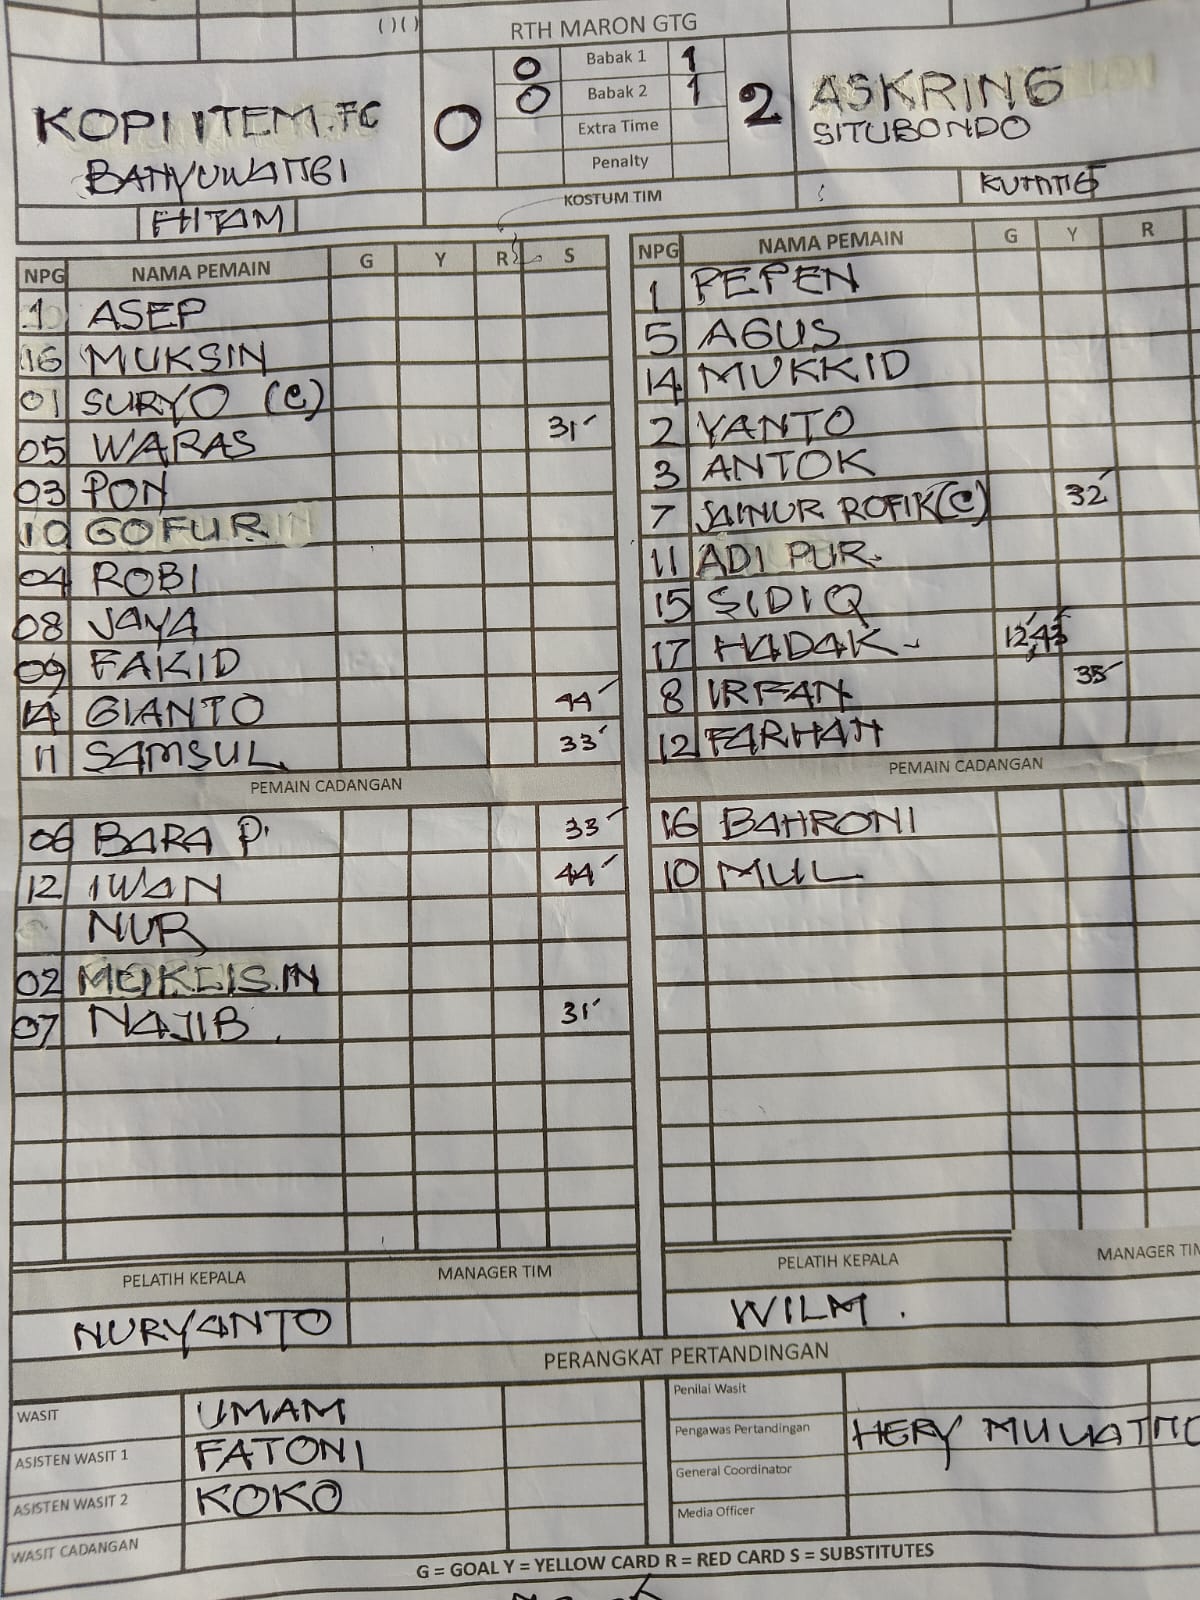 RTH MARON GTG
KOPI ITEM.FC
BANYUWANGI
HITAM
0
0 Babak 1 1
0 Babak 2 1
Extra Time
Penalty
2
ASKRING
SITUBONDO
KOSTUM TIM
KUNING
NPG NAMA PEMAIN G Y R S
1 ASEP
16 MUKSIN
01 SURYO (C)
05 WARAS 31'
03 PON
10 GOFUR
04 ROBI
08 JAYA
09 FAKID
14 GIANTO 44'
11 SAMSUL 33'
PEMAIN CADANGAN
06 BARA P. 33'
12 IWAN 44'
NUR
02 MUKLIS.IN
07 NAJIB. 31'
PELATIH KEPALA MANAGER TIM
NURYANTO
NPG NAMA PEMAIN G Y R
1 PEPEN
5 AGUS
14 MUKKID
2 YANTO
3 ANTOK
7 JAINUR ROFIK (C) 32'
11 ADI PUR.
15 SIDIQ
17 HADAK 12', 43'
8 IRFAN 35'
12 FARHAN
PEMAIN CADANGAN
16 BAHRONI
10 MUL
PELATIH KEPALA MANAGER TIM
WILM.
PERANGKAT PERTANDINGAN
WASIT UMAM
ASISTEN WASIT 1 FATONI
ASISTEN WASIT 2 KOKO
WASIT CADANGAN
Penilai Wasit
Pengawas Pertandingan HERY
General Coordinator
Media Officer
G = GOAL Y = YELLOW CARD R = RED CARD S = SUBSTITUTES